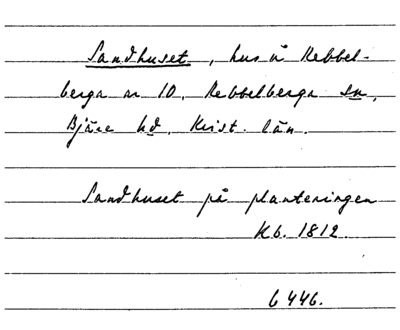 Sandhuset, hus å Rebbel-
berga nr 10, Rebbelberga sn,
Bjäre hd. Krist. län.
Sandhuset på planteringen
Kb. 1812.
6446.